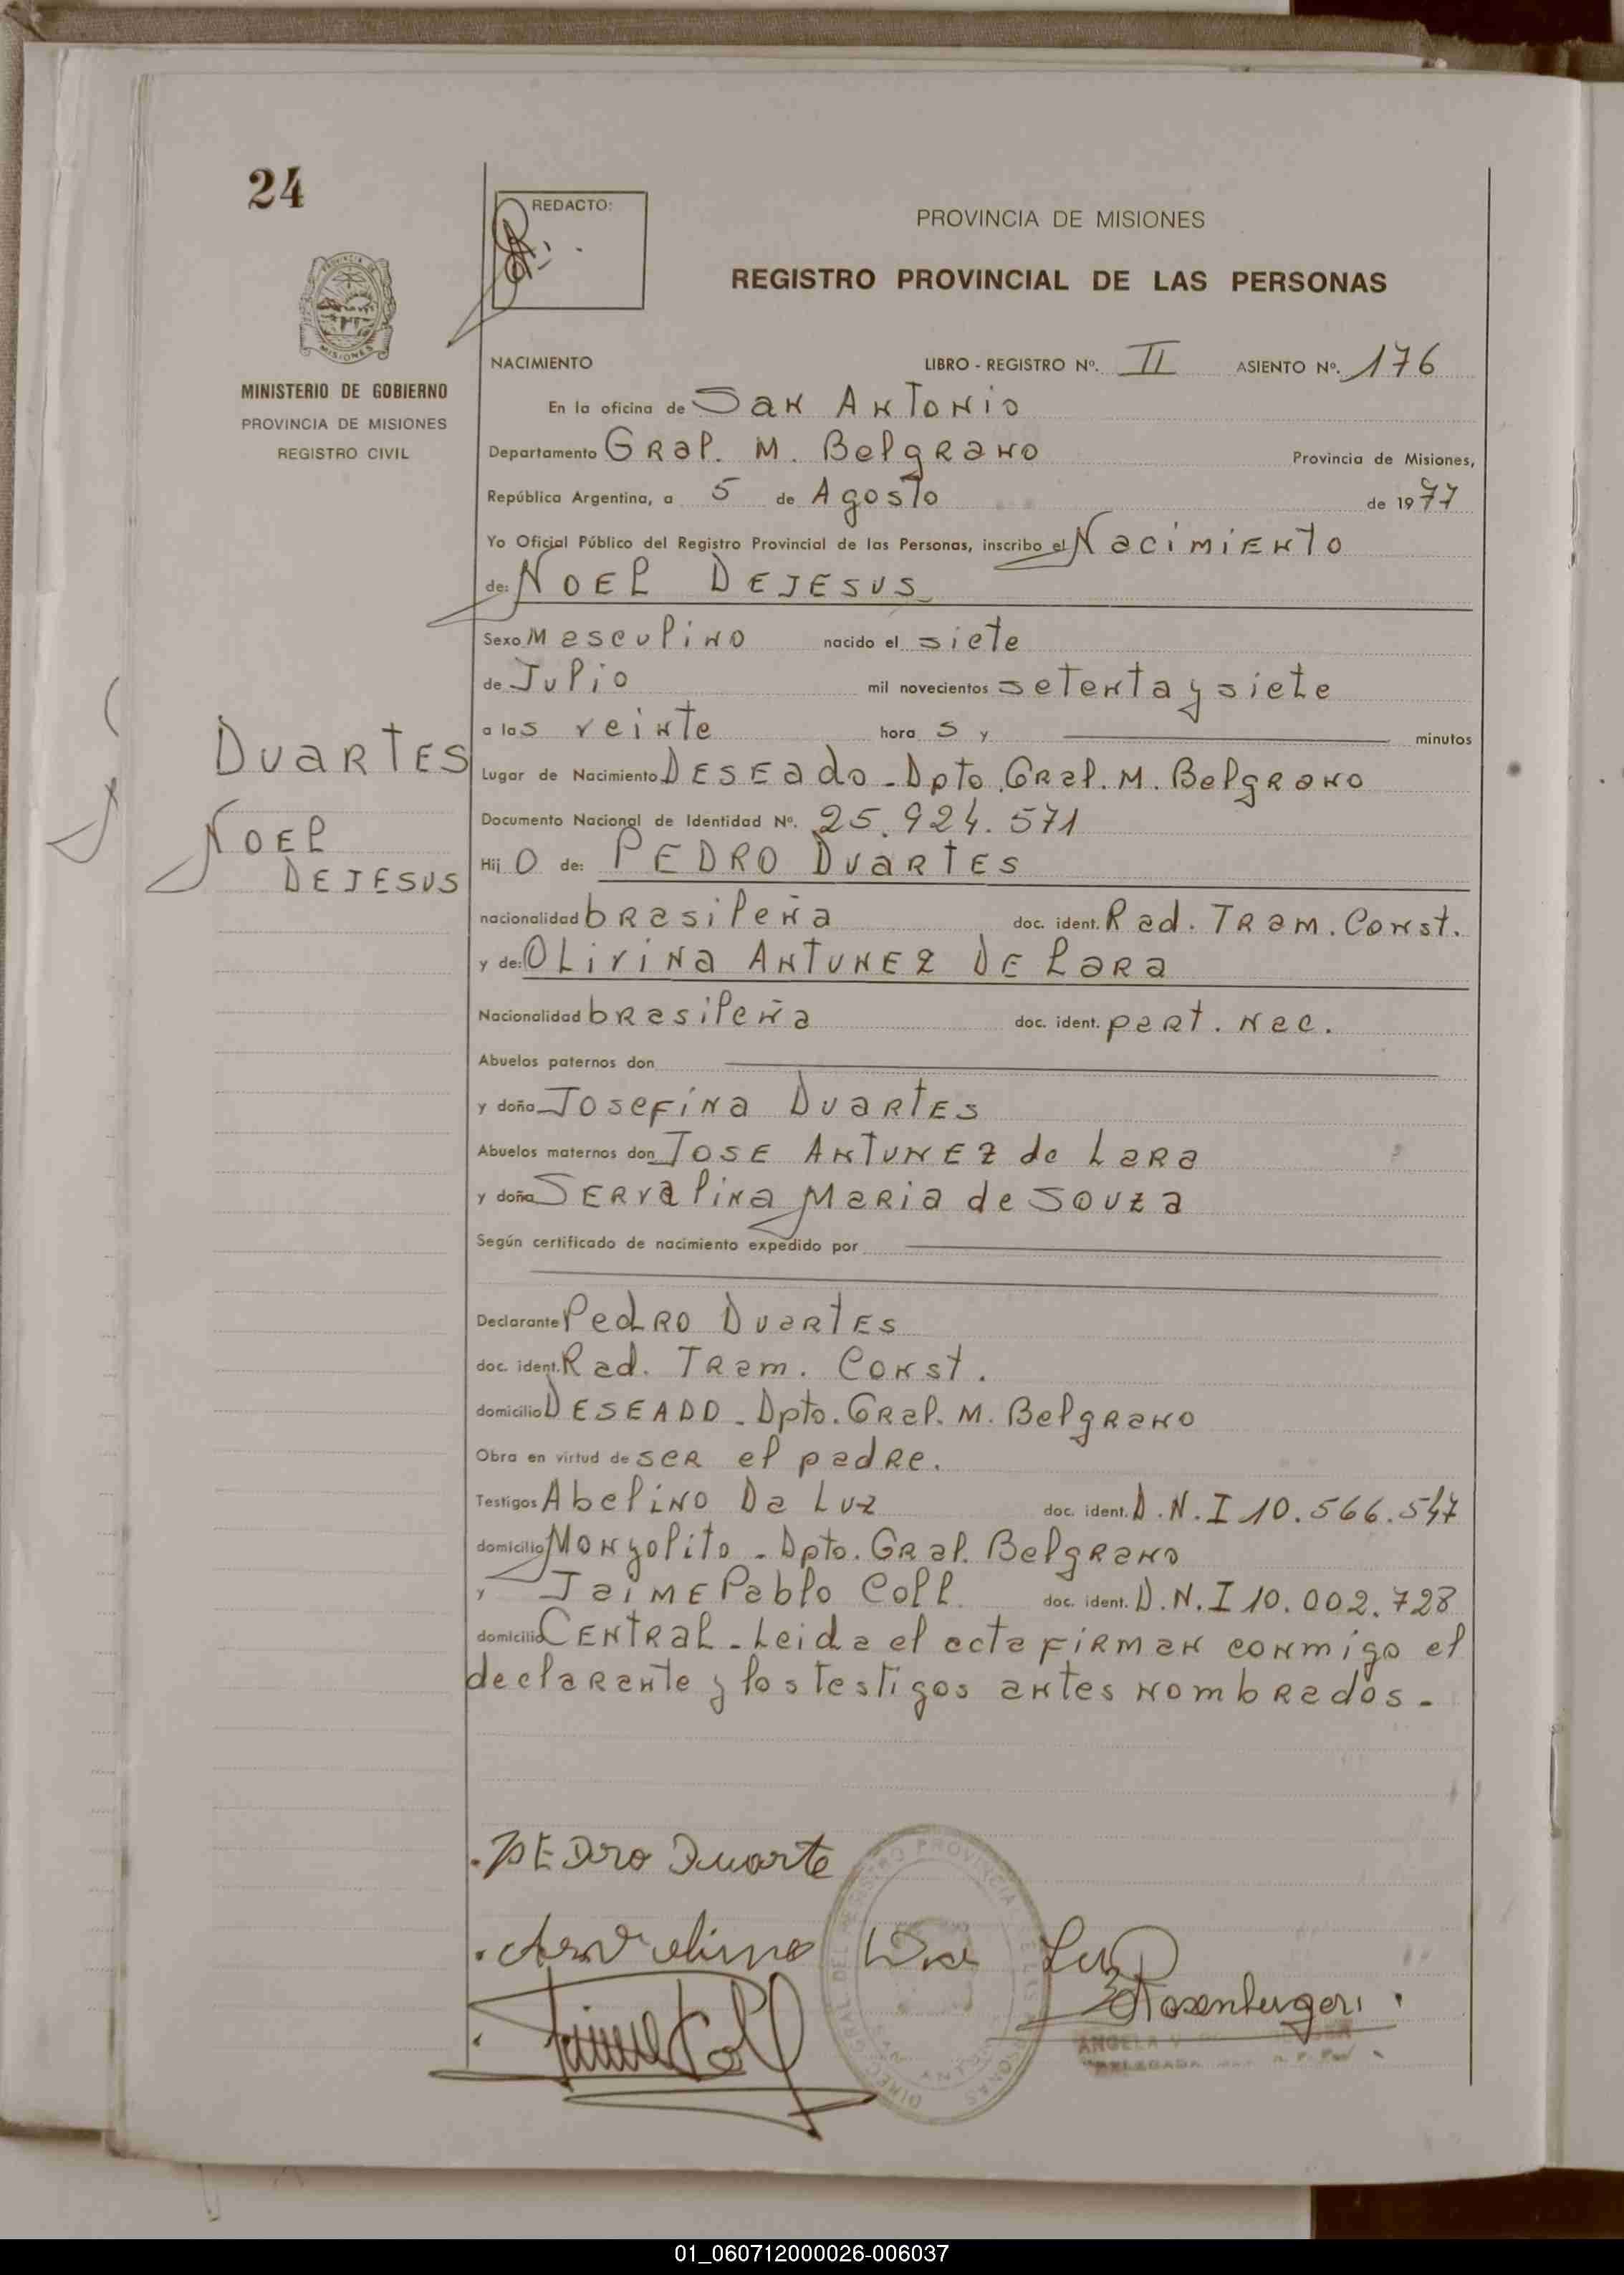 24
REDACTO:
PROVINCIA DE MISIONES
REGISTRO PROVINCIAL DE LAS PERSONAS
MISIONES
MINISTERIO DE GOBIERNO
PROVINCIA DE MISIONES
REGISTRO CIVIL
NACIMIENTO LIBRO - REGISTRO Nº. II ASIENTO Nº. 176
En la oficina de San Antonio
Departamento Gral. M. Belgrano Provincia de Misiones,
República Argentina, a 5 de Agosto de 1977
Yo Oficial Público del Registro Provincial de las Personas, inscribo el Nacimiento
de: NOEL DEJESUS
Sexo Masculino nacido el siete
de Julio mil novecientos setenta y siete
a las veinte hora s y minutos
Lugar de Nacimiento DESEado - Dpto. Gral. M. Belgrano
Documento Nacional de Identidad Nº. 25.924.571
Hij O de: PEDRO DUARTES
nacionalidad brasileña doc. ident. Rad. Tram. Const.
y de: OLIVINA ANTUNEZ DE LARA
Nacionalidad brasileña doc. ident. part. nac.
Abuelos paternos don
y doña Josefina Duartes
Abuelos maternos don JOSE ANTUNEZ de Lara
y doña SERValina Maria de Souza
Según certificado de nacimiento expedido por
Declarante Pedro Duartes
doc. ident. Rad. Tram. Const.
domicilio DESEADO - Dpto. Gral. M. Belgrano
Obra en virtud de ser el padre.
Testigos Abelino Da Luz doc. ident. D.N.I 10.566.547
domicilio Monzolito - Dpto. Gral. Belgrano
y Jaime Pablo Coll doc. ident. D.N.I 10.002.728
domicilio CENTRAL - Leida el acta firman conmigo el
declarante y los testigos antes nombrados.-
DUARTES
NOEL
DEJESUS
PEDro Duarte
Da Luz
Jaime Coll
Rosenberger
ANGELA V.
DELEGADA
01_060712000026-006037